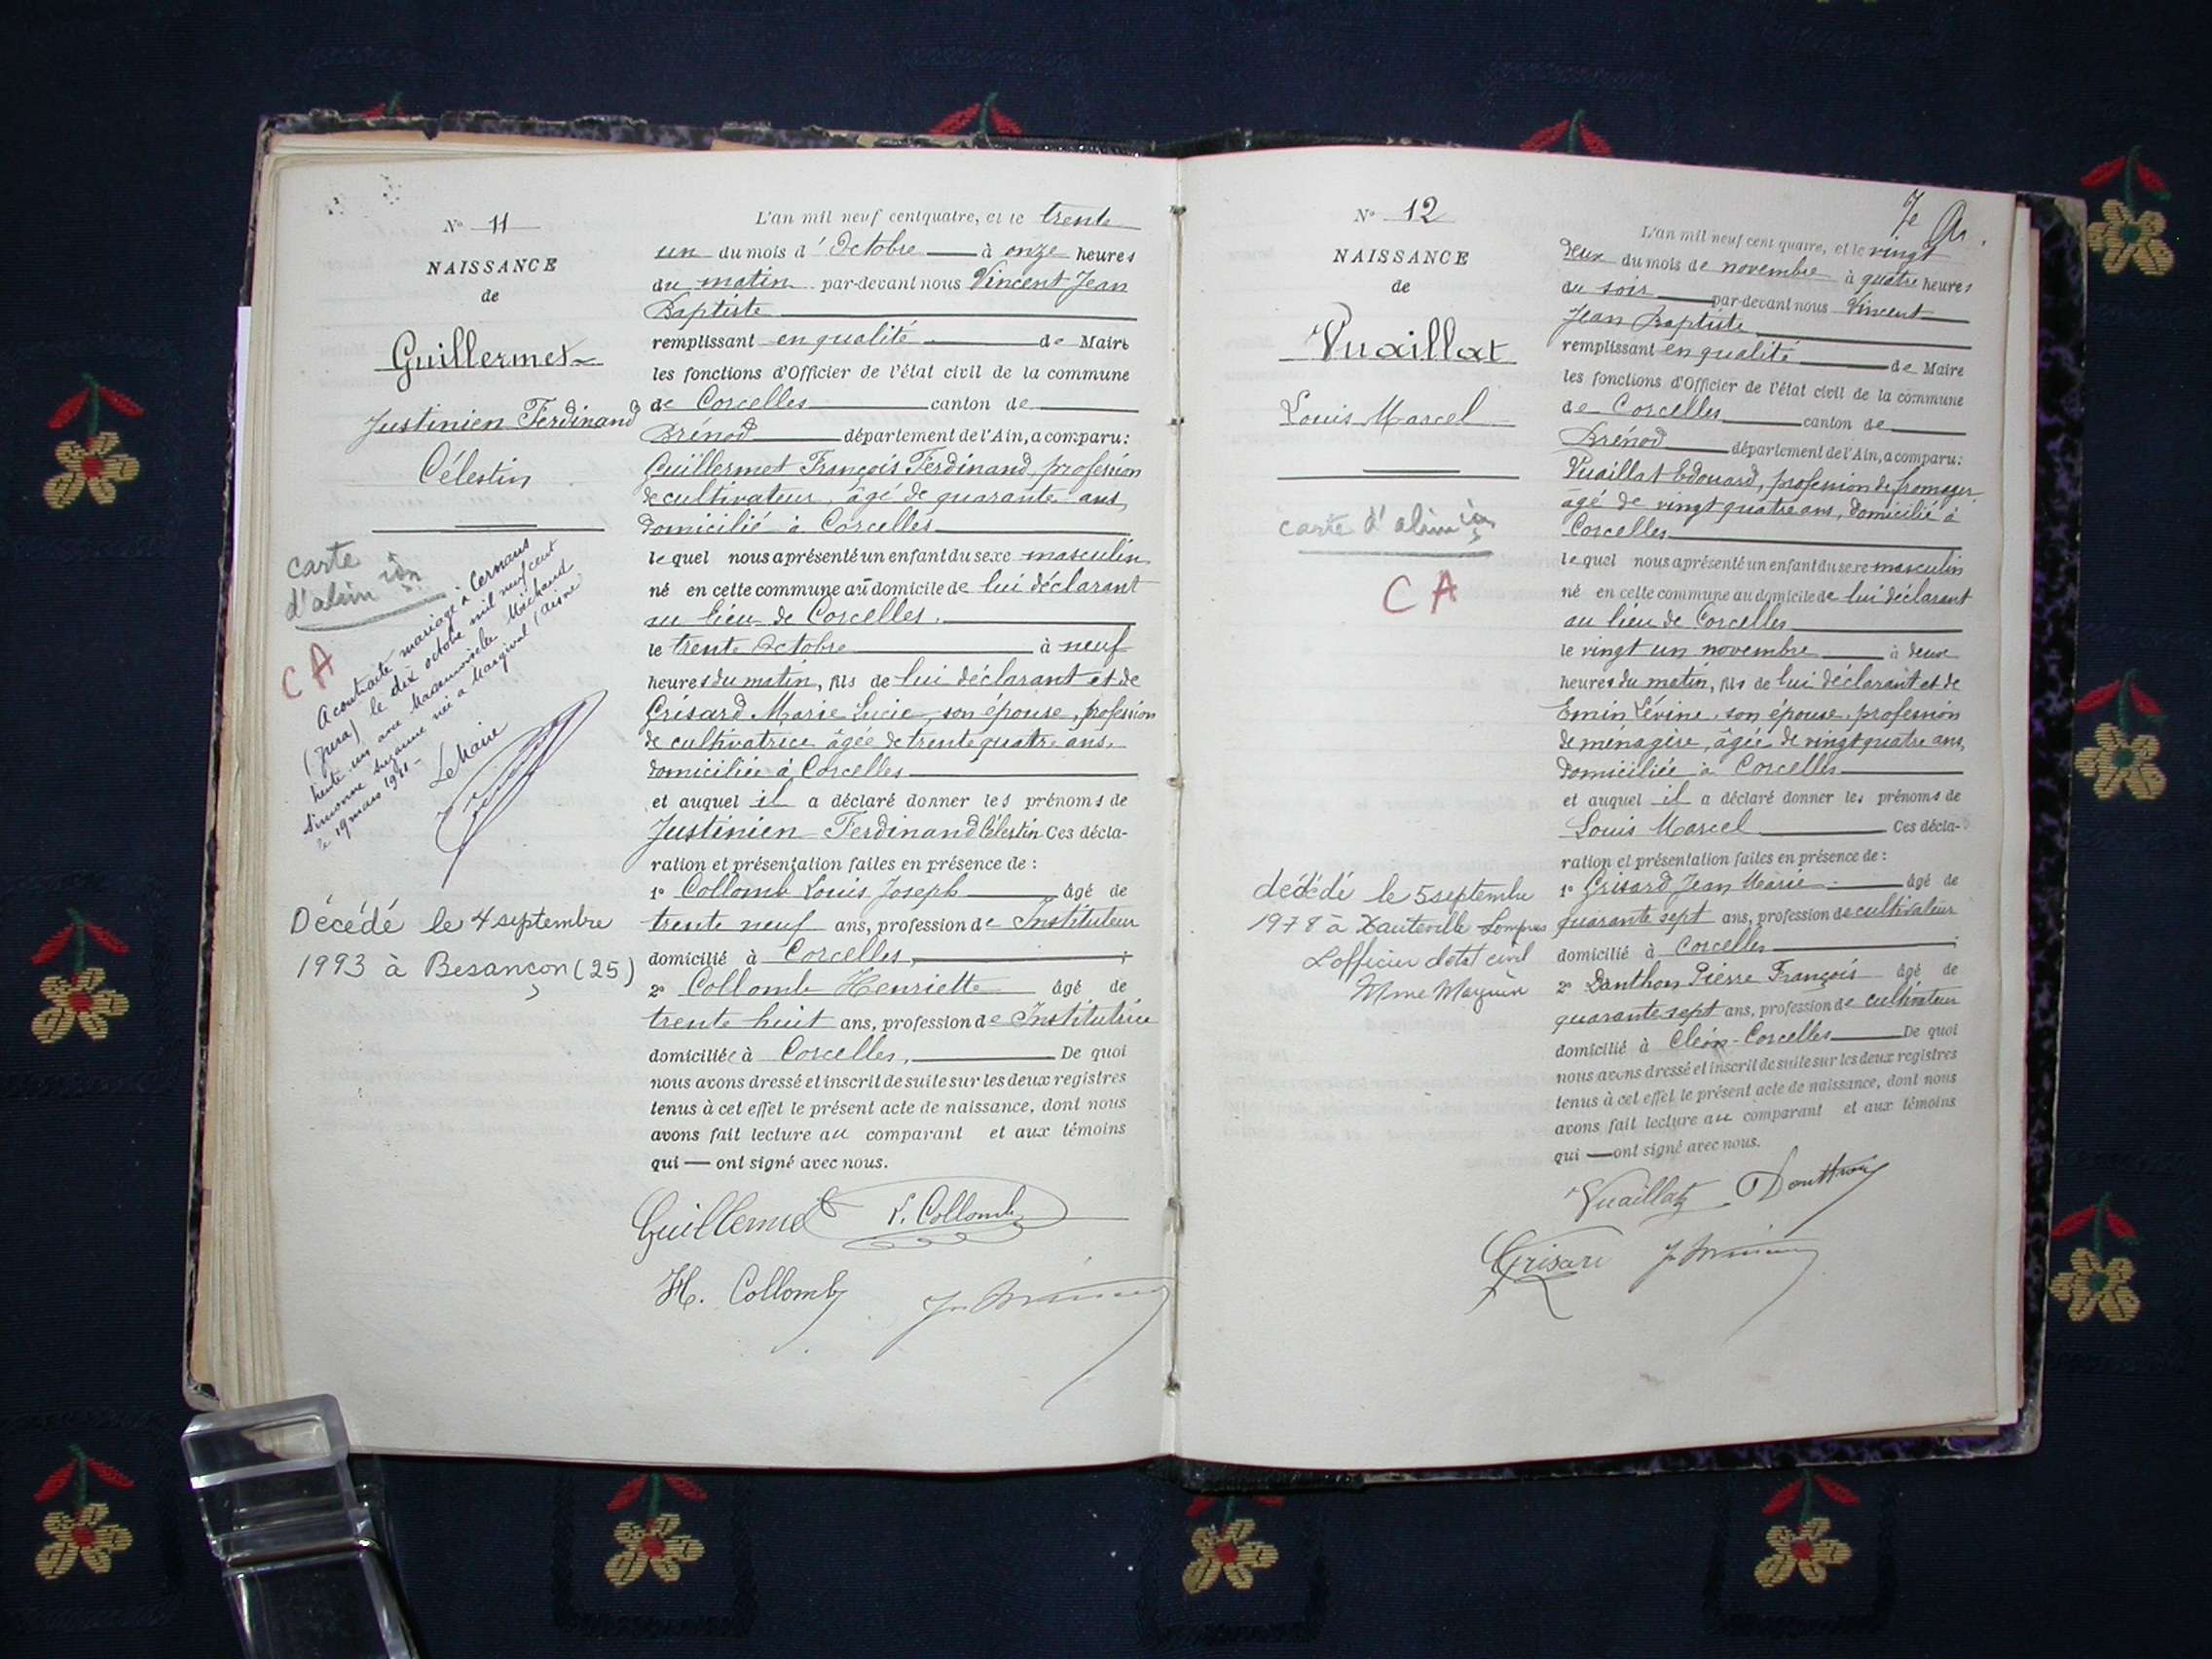 N° 11
NAISSANCE
de
Guillermet
Justinien Ferdinand
Célestin
carte
d'alim ion
CA
A contracté mariage à Cernans
(Jura) le dix octobre mil neuf cent
trente un avec Mademoiselle Michaud
Simonne Suzanne née à Margival (Aisne)
le 19 mars 1911 -
Le Maire
Décédé le 4 septembre
1993 à Besançon (25)
L'an mil neuf cent quatre, et le trente
un du mois d'Octobre à onze heures
du matin par-devant nous Vincent Jean
Baptiste
remplissant en qualité de Maire
les fonctions d'Officier de l'état civil de la commune
de Corcelles canton de
Brénod département de l'Ain, a comparu:
Guillermet François Ferdinand, profession
de cultivateur, âgé de quarante ans,
domicilié à Corcelles
lequel nous a présenté un enfant du sexe masculin
né en cette commune au domicile de lui déclarant
au lieu de Corcelles.
le trente Octobre à neuf
heures du matin, fils de lui déclarant et de
Grisard Marie Lucie, son épouse, profession
de cultivatrice âgée de trente quatre ans,
domiciliée à Corcelles
et auquel il a déclaré donner les prénoms de
Justinien Ferdinand Célestin Ces décla-
ration et présentation faites en présence de :
1° Collomb Louis Joseph âgé de
trente neuf ans, profession de Instituteur
domicilié à Corcelles, ;
2° Collomb Henriette âgé de
trente huit ans, profession de Institutrice
domiciliée à Corcelles, De quoi
nous avons dressé et inscrit de suite sur les deux registres
tenus à cet effet le présent acte de naissance, dont nous
avons fait lecture au comparant et aux témoins
qui — ont signé avec nous.
Guillermet L. Collomb
H. Collomb
N° 12
NAISSANCE
de
Vuaillat
Louis Marcel
carte d'alim ion
CA
décédé le 5 septembre
1978 à Hauteville Lompnes
L'officier d'etat civil
Mme
L'an mil neuf cent quatre, et le vingt
deux du mois de novembre à quatre heures
du soir par-devant nous Vincent
Jean Baptiste
remplissant en qualité de Maire
les fonctions d'Officier de l'état civil de la commune
de Corcelles canton de
Brénod département de l'Ain, a comparu:
Vuaillat Edouard, profession de fromager
âgé de vingt quatre ans, domicilié à
Corcelles
lequel nous a présenté un enfant du sexe masculin
né en cette commune au domicile de lui déclarant
au lieu de Corcelles
le vingt un novembre à deux
heures du matin, fils de lui déclarant et de
Emin Lévine, son épouse, profession
de ménagère, âgée de vingt quatre ans,
domiciliée à Corcelles
et auquel il a déclaré donner les prénoms de
Louis Marcel Ces décla-
ration et présentation faites en présence de :
1° Grisard Jean Marie âgé de
quarante sept ans, profession de cultivateur
domicilié à Corcelles ;
2° Danthon Pierre François âgé de
quarante sept ans, profession de cultivateur
domicilié à Cléon-Corcelles De quoi
nous avons dressé et inscrit de suite sur les deux registres
tenus à cet effet le présent acte de naissance, dont nous
avons fait lecture au comparant et aux témoins
qui — ont signé avec nous.
Vuaillat Danthon
Grisard